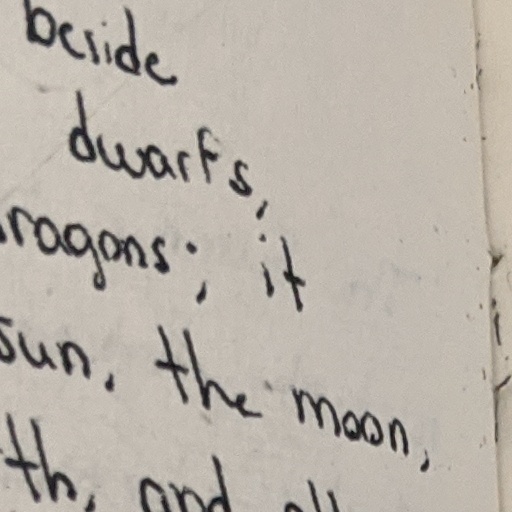 beside
dwarfs,
ragons; it
sun, the moon,
th, and all